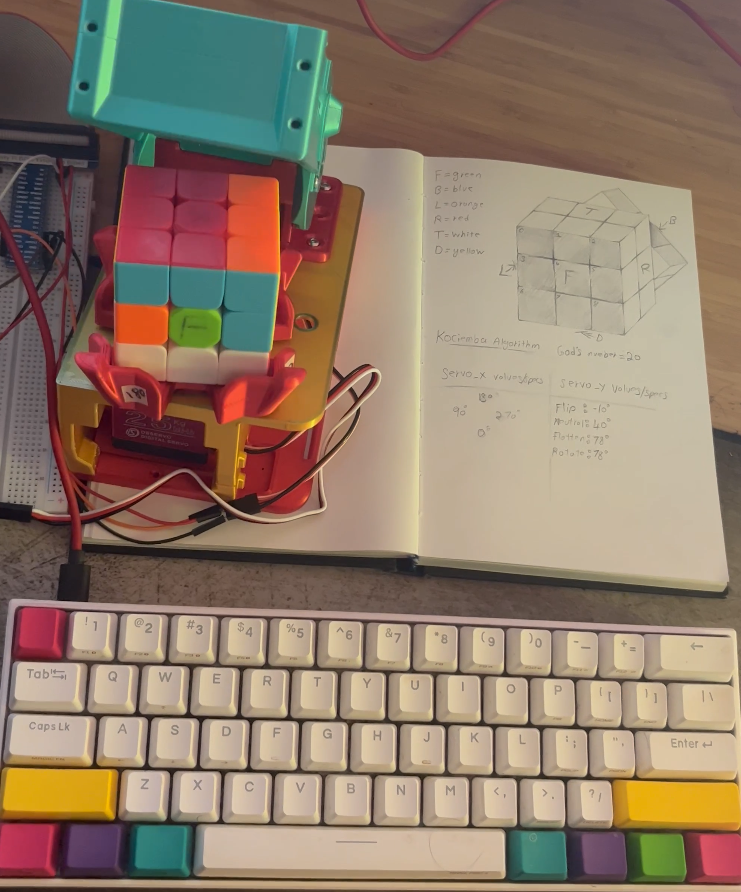 F=green
B=blue
L=orange
R=red
T=white
D=yellow
T
B
L
F
R
D
Kociemba Algorithm
God's number=20
Servo_X values/specs
Servo_Y values/specs
90°
270°
0°
Flip : -10°
Neutral: 40°
Flatten: 78°
Rotate: 78°
F
DIGITAL SERVO
! 1
@ 2
# 3
$ 4
% 5
^ 6
& 7
* 8
( 9
) 0
- _
+ =
←
Tab
Q
W
E
R
T
Y
U
I
O
P
{ [
} ]
| \
Caps Lk
A
S
D
F
G
H
J
K
L
: ;
" '
Enter ↵
Z
X
C
V
B
N
M
< ,
> .
? /